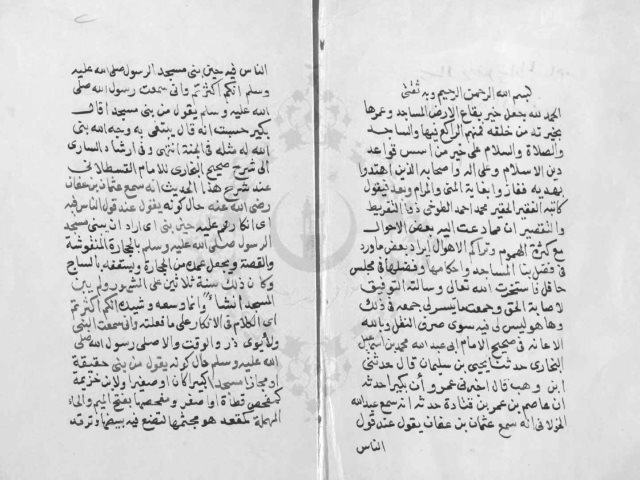 بسم الله الرحمن الرحيم وبه ثقتى
الحمد لله جعل خير بقاع الارض المساجد وعمرها
بخيرته من خلقه فمنهم الراكع فيها والساجد
والصلاة والسلام على خير من اسس قواعد
دين الاسلام وعلى اله واصحابه الذين اهتدوا
بهديه ففازوا بغاية المنى والمرام وبعد فيقول
كاتبه الفقير الحقير محمد احمد الطوخى ذى التفريط
والتقصير ان مما دعت اليه بعض الاحوال
مع كثرة الهموم وتراكم الاهوال ايراد بعض ما ورد
فى فضل بنا المساجد واحكامها وفضلها فى مجلس
حافل فاستخرت الله تعالى وسالته التوفيق
لاصابة الحق وجمعت ما يسر لى جمعه فى ذلك
وها هو ليس لى فيه سوى صرف النقل وبالله
الاعانة فى صحيح الامام ابى عبد الله محمد بن اسمعيل
البخارى حدثنا يحيى بن سليمان قال حدثنى
ابن وهب قال اخبرنى عمرو ان بكيرا حدثه
ان عاصم بن عمر بن قتادة حدثه انه سمع عبيد الله
الخولانى انه سمع عثمان بن عفان يقول عند قول
الناس
الناس فيه حين بنى مسجد الرسول صلى الله عليه
وسلم انكم اكثرتم وانى سمعت رسول الله صلى
الله عليه وسلم يقول من بنى مسجدا قال
بكير حسبته انه قال يبتغى به وجه الله بنى
الله له مثله فى الجنة انتهى وفى ارشاد السارى
الى شرح صحيح البخارى للامام القسطلانى
عند شرح هذا الحديث انه سمع عثمان بن عفان
رضى الله عنه حال كونه يقول عند قول الناس فيه
اى انكارهم عليه حين بنى اى اراد ان يبنى مسجد
الرسول صلى الله عليه وسلم بالحجارة المنقوشة
والقصة ويجعل عمده من الحجارة ويسقفه بالساج
وكان ذلك سنة ثلاثين على المشهور ولم يبن
المسجد انشاء وانما وسعه وشيده انكم اكثرتم
اى الكلام فى الانكار على ما فعلته وانى سمعت النبى
ولابوى ذر والوقت والاصيلى رسول الله صلى
الله عليه وسلم حال كونه يقول من بنى حقيقة
او مجازا مسجدا كبيرا كان او صغيرا ولابن خزيمة
كمفحص قطاة او اصغر ومفحصها بفتح الميم والحاء
المهملة كمقعد هو مجثمها لتضع فيه بيضها وترقد